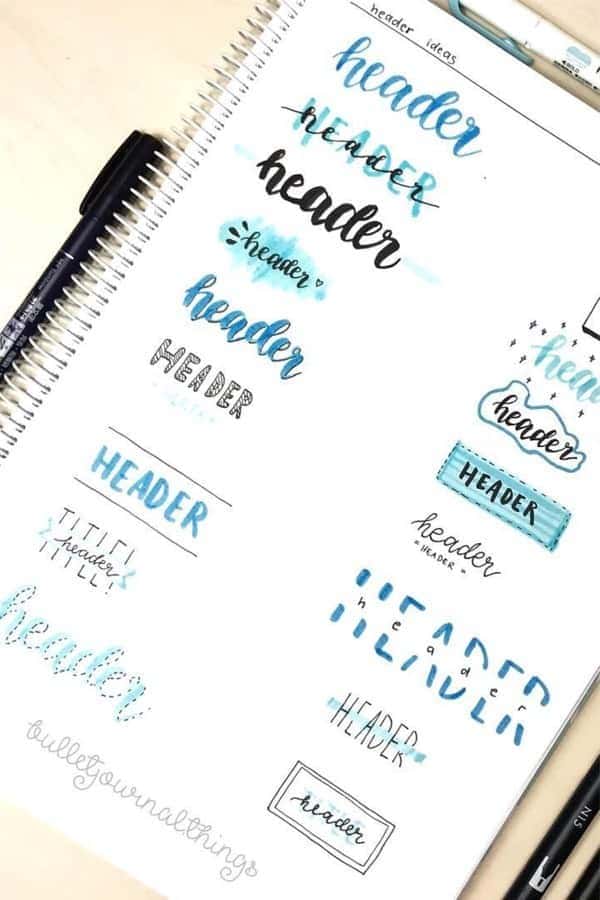 header ideas
header
HEADER
header
header
header ♡
header
HEADER
HEADER
header
header
bulletjournalthings
head
header
HEADER
header
- HEADER -
HEADER
header
HEADER
header
N15